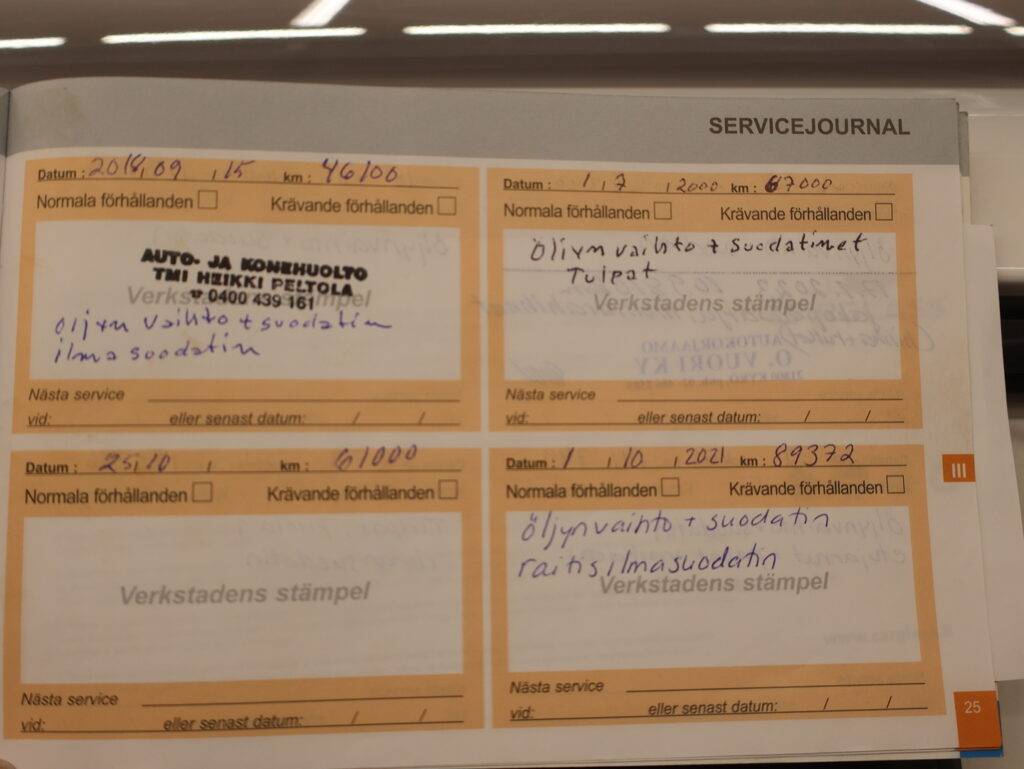 SERVICEJOURNAL
Datum : 2018, 09 , 15 km : 46100
Normala förhållanden Krävande förhållanden
AUTO- JA KONEHUOLTO
TMI HEIKKI PELTOLA
0400 439 161
Verkstadens stämpel
öljyn vaihto + suodatin
ilma suodatin
Nästa service
vid: eller senast datum: / /
Datum : 1 , 7 , 2000 km : 67000
Normala förhållanden Krävande förhållanden
Öljyn vaihto + suodatimet
Tulpat
Verkstadens stämpel
Nästa service
vid: eller senast datum: / /
Datum : 25,10 , km : 61000
Normala förhållanden Krävande förhållanden
Verkstadens stämpel
Nästa service
vid: eller senast datum: / /
Datum : 1 , 10 , 2021 km : 89372
Normala förhållanden Krävande förhållanden
öljynvaihto + suodatin
raitisilmasuodatin
Verkstadens stämpel
Nästa service
vid: eller senast datum: / /
III
25